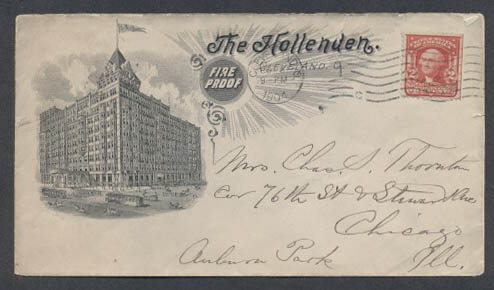 The Hollenden.
FIRE
PROOF
CLEVELAND, O
9-PM
2
Mrs. Chas. S. Thornton
Cor 76th St & Stewart Ave
Chicago
Auburn Park Ill.